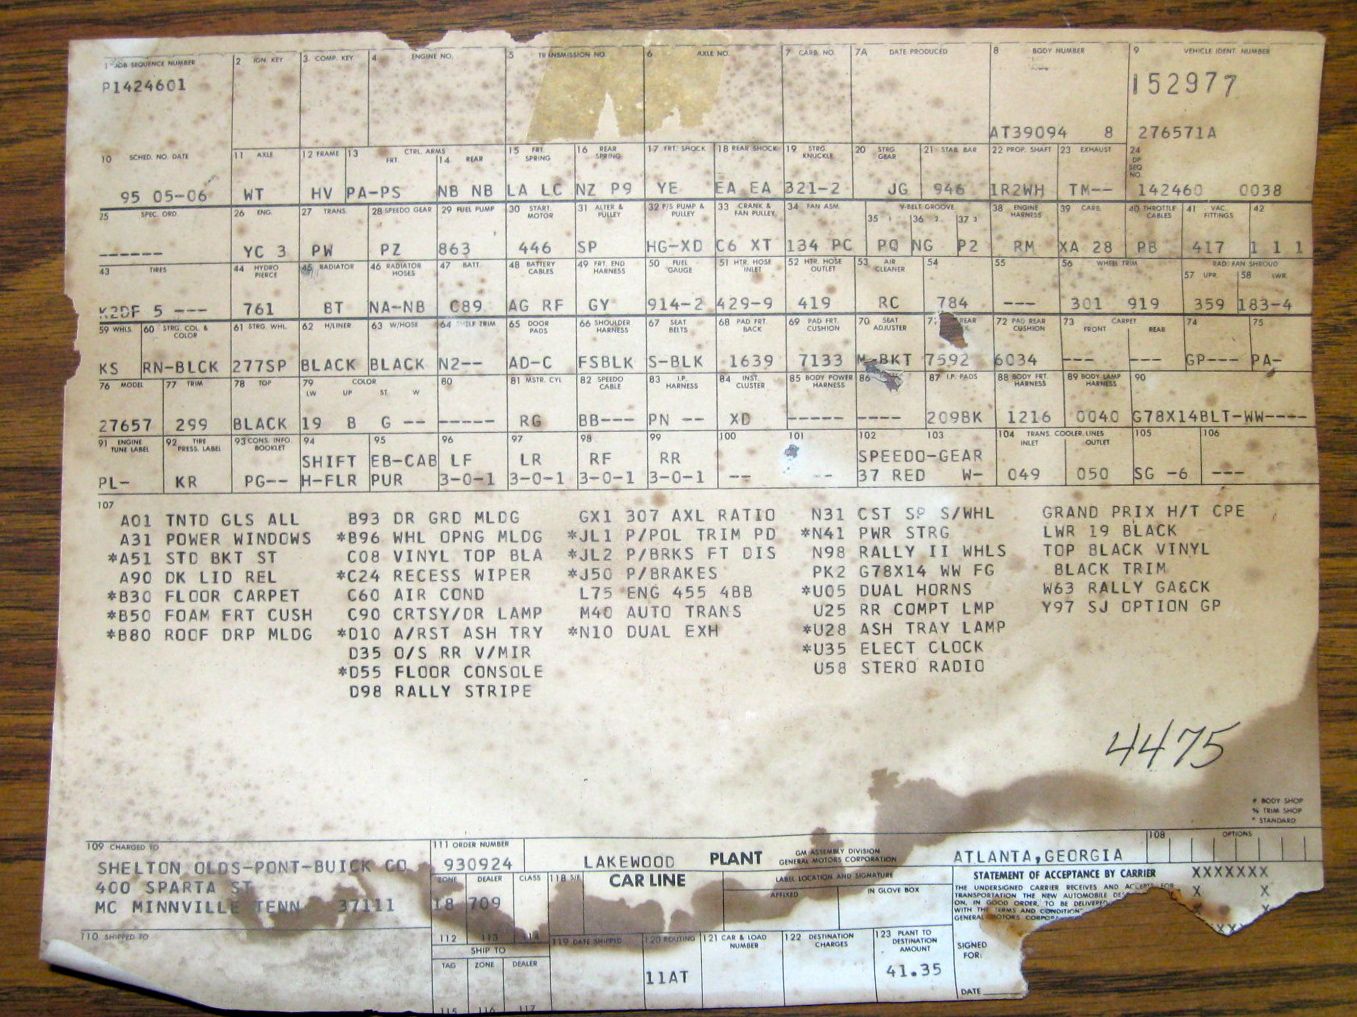 1 JOB SEQUENCE NUMBER 2 IGN. KEY 3 COMP. KEY 4 ENGINE NO. 5 TRANSMISSION NO. 6 AXLE NO. 7 CARB. NO. 7A DATE PRODUCED 8 BODY NUMBER 9 VEHICLE IDENT. NUMBER
P1424601 152977
AT39094 8 276571A
10 SCHED. NO. DATE 11 AXLE 12 FRAME 13 CTRL. ARMS FRT. 14 REAR 15 FRT. SPRING 16 REAR SPRING 17 FRT. SHOCK 18 REAR SHOCK 19 STRG KNUCKLE 20 STRG GEAR 21 STAB. BAR 22 PROP. SHAFT 23 EXHAUST 24 DP SEQ NO.
95 05-06 WT HV PA-PS NB NB LA LC NZ P9 YE EA EA 321-2 JG 946 1R2WH TM-- 142460 0038
25 SPEC. ORD. 26 ENG. 27 TRANS. 28 SPEEDO GEAR 29 FUEL PUMP 30 START. MOTOR 31 ALTER & PULLEY 32 P/S PUMP & PULLEY 33 CRANK & FAN PULLEY 34 FAN ASM. V-BELT GROOVE 35 36 37 38 ENGINE HARNESS 39 CARB. 40 THROTTLE CABLES 41 VAC. FITTINGS 42
------ YC 3 PW PZ 863 446 SP HG-XD C6 XT 134 PC PQ NG P2 RM XA 28 PB 417 1 1 1
43 TIRES 44 HYDRO PIERCE 45 RADIATOR 46 RADIATOR HOSES 47 BATT. 48 BATTERY CABLES 49 FRT. END HARNESS 50 FUEL GAUGE 51 HTR. HOSE INLET 52 HTR. HOSE OUTLET 53 AIR CLEANER 54 55 56 WHEEL TRIM RAD. FAN SHROUD 57 UPR. 58 LWR.
K2DF 5 --- 761 BT NA-NB C89 AG RF GY 914-2 429-9 419 RC 784 --- 301 919 359 183-4
59 WHLS 60 STRG. COL & COLOR 61 STRG. WHL. 62 H/LINER 63 W/HOSE 64 SHELF TRIM 65 DOOR PADS 66 SHOULDER HARNESS 67 SEAT BELTS 68 PAD FRT. BACK 69 PAD FRT. CUSHION 70 SEAT ADJUSTER REAR 72 PAD REAR CUSHION 73 CARPET FRONT REAR 74 75
KS RN-BLCK 277SP BLACK BLACK N2-- AD-C FSBLK S-BLK 1639 7133 M-BKT 7592 6034 --- --- GP--- PA-
76 MODEL 77 TRIM 78 TOP 79 COLOR LW UP ST. W 80 81 MSTR. CYL 82 SPEEDO CABLE 83 I.P. HARNESS 84 INST. CLUSTER 85 BODY POWER HARNESS 86 87 I.P. PADS 88 BODY FRT. HARNESS 89 BODY LAMP HARNESS 90
27657 299 BLACK 19 B G -- ----- RG BB---- PN -- XD ----- ---- 209BK 1216 0040 G78X14BLT-WW----
91 ENGINE TUNE LABEL 92 TIRE PRESS. LABEL 93 CONS. INFO. BOOKLET 94 95 96 97 98 99 100 101 102 103 104 TRANS. COOLER LINES INLET OUTLET 105 106
SHIFT EB-CAB LF LR RF RR SPEEDO-GEAR
PL- KR PG-- H-FLR PUR 3-0-1 3-0-1 3-0-1 3-0-1 -- -- 37 RED W- 049 050 SG -6 ---
107
A01 TNTD GLS ALL B93 DR GRD MLDG GX1 307 AXL RATIO N31 CST SP S/WHL GRAND PRIX H/T CPE
A31 POWER WINDOWS *B96 WHL OPNG MLDG *JL1 P/POL TRIM PD *N41 PWR STRG LWR 19 BLACK
*A51 STD BKT ST C08 VINYL TOP BLA *JL2 P/BRKS FT DIS N98 RALLY II WHLS TOP BLACK VINYL
A90 DK LID REL *C24 RECESS WIPER *J50 P/BRAKES PK2 G78X14 WW FG BLACK TRIM
*B30 FLOOR CARPET C60 AIR COND L75 ENG 455 4BB *U05 DUAL HORNS W63 RALLY GA&CK
*B50 FOAM FRT CUSH C90 CRTSY/DR LAMP M40 AUTO TRANS U25 RR COMPT LMP Y97 SJ OPTION GP
*B80 ROOF DRP MLDG *D10 A/RST ASH TRY *N10 DUAL EXH *U28 ASH TRAY LAMP
D35 O/S RR V/MIR *U35 ELECT CLOCK
*D55 FLOOR CONSOLE U58 STERO RADIO
D98 RALLY STRIPE
4475
# BODY SHOP
% TRIM SHOP
* STANDARD
109 CHARGED TO 111 ORDER NUMBER LAKEWOOD PLANT GM ASSEMBLY DIVISION GENERAL MOTORS CORPORATION ATLANTA,GEORGIA 108 OPTIONS
SHELTON OLDS-PONT-BUICK CO 930924
400 SPARTA ST ZONE DEALER CLASS 118 CAR LINE LABEL LOCATION AND SIGNATURE STATEMENT OF ACCEPTANCE BY CARRIER XXXXXXX
MC MINNVILLE TENN 37111 18 709 AFFIXED IN GLOVE BOX
THE UNDERSIGNED CARRIER RECEIVES AND ACCEPTS FOR X X
TRANSPORTATION THE NEW AUTOMOBILE
ON, IN GOOD ORDER, TO BE DELIVERED
WITH THE TERMS AND CONDITION X
GENERAL MOTORS
110 SHIPPED TO 112 113 SHIP TO 119 DATE SHIPPED 120 ROUTING 121 CAR & LOAD NUMBER 122 DESTINATION CHARGES 123 PLANT TO DESTINATION AMOUNT SIGNED FOR:
TAG ZONE DEALER 11AT 41.35
DATE
115 116 117